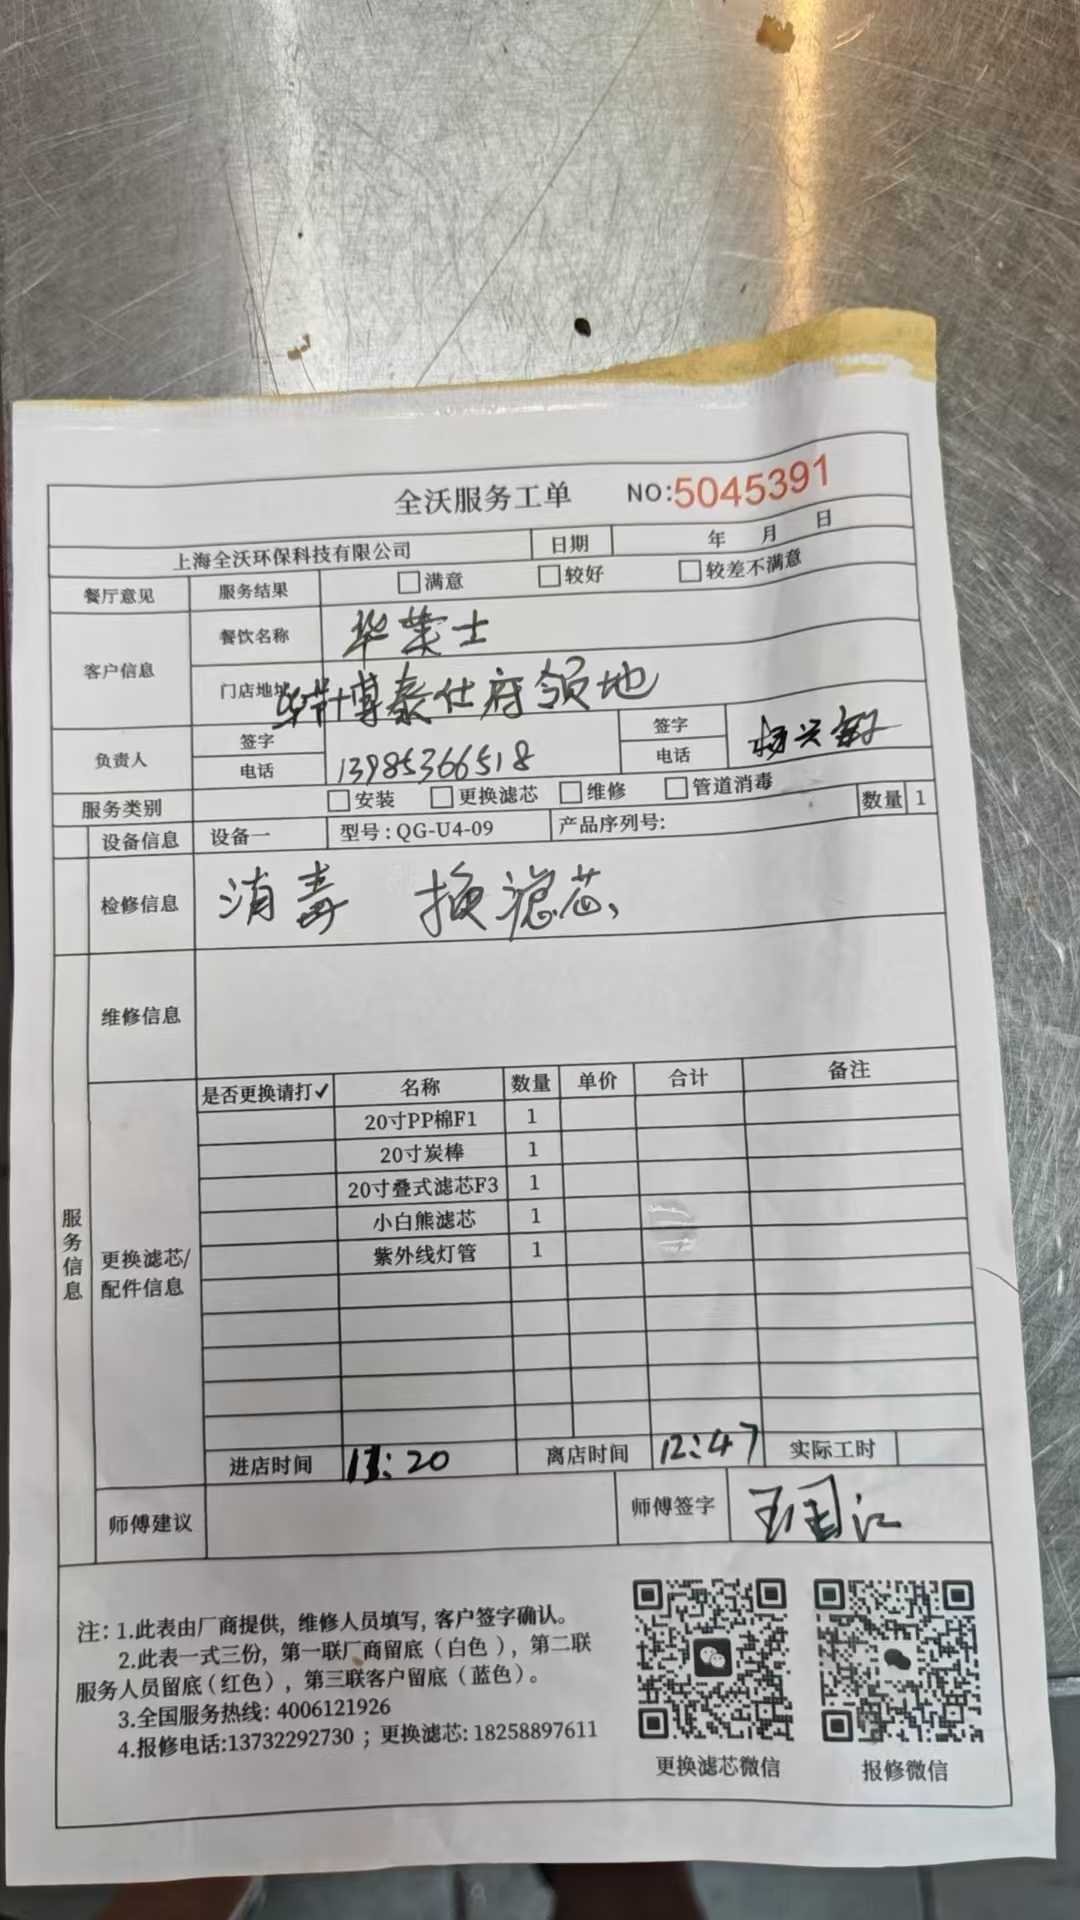 全沃服务工单 NO:5045391
上海全沃环保科技有限公司 日期 年 月 日
餐厅意见 服务结果 满意 较好 较差不满意
客户信息 餐饮名称 华莱士
门店地址 博泰仕府领地
负责人 签字 签字
电话 13985366518 电话
服务类别 安装 更换滤芯 维修 管道消毒
设备信息 设备一 型号:QG-U4-09 产品序列号: 数量 1
检修信息 消毒 换滤芯、
维修信息
是否更换请打✓ 名称 数量 单价 合计 备注
20寸PP棉F1 1
20寸炭棒 1
20寸叠式滤芯F3 1
小白熊滤芯 1
紫外线灯管 1
服务信息
更换滤芯/
配件信息
进店时间 :20 离店时间 12:47 实际工时
师傅建议 师傅签字 王国江
注:1.此表由厂商提供,维修人员填写,客户签字确认。
2.此表一式三份,第一联厂商留底(白色),第二联
服务人员留底(红色),第三联客户留底(蓝色)。
3.全国服务热线:4006121926
4.报修电话:13732292730;更换滤芯:18258897611
更换滤芯微信 报修微信